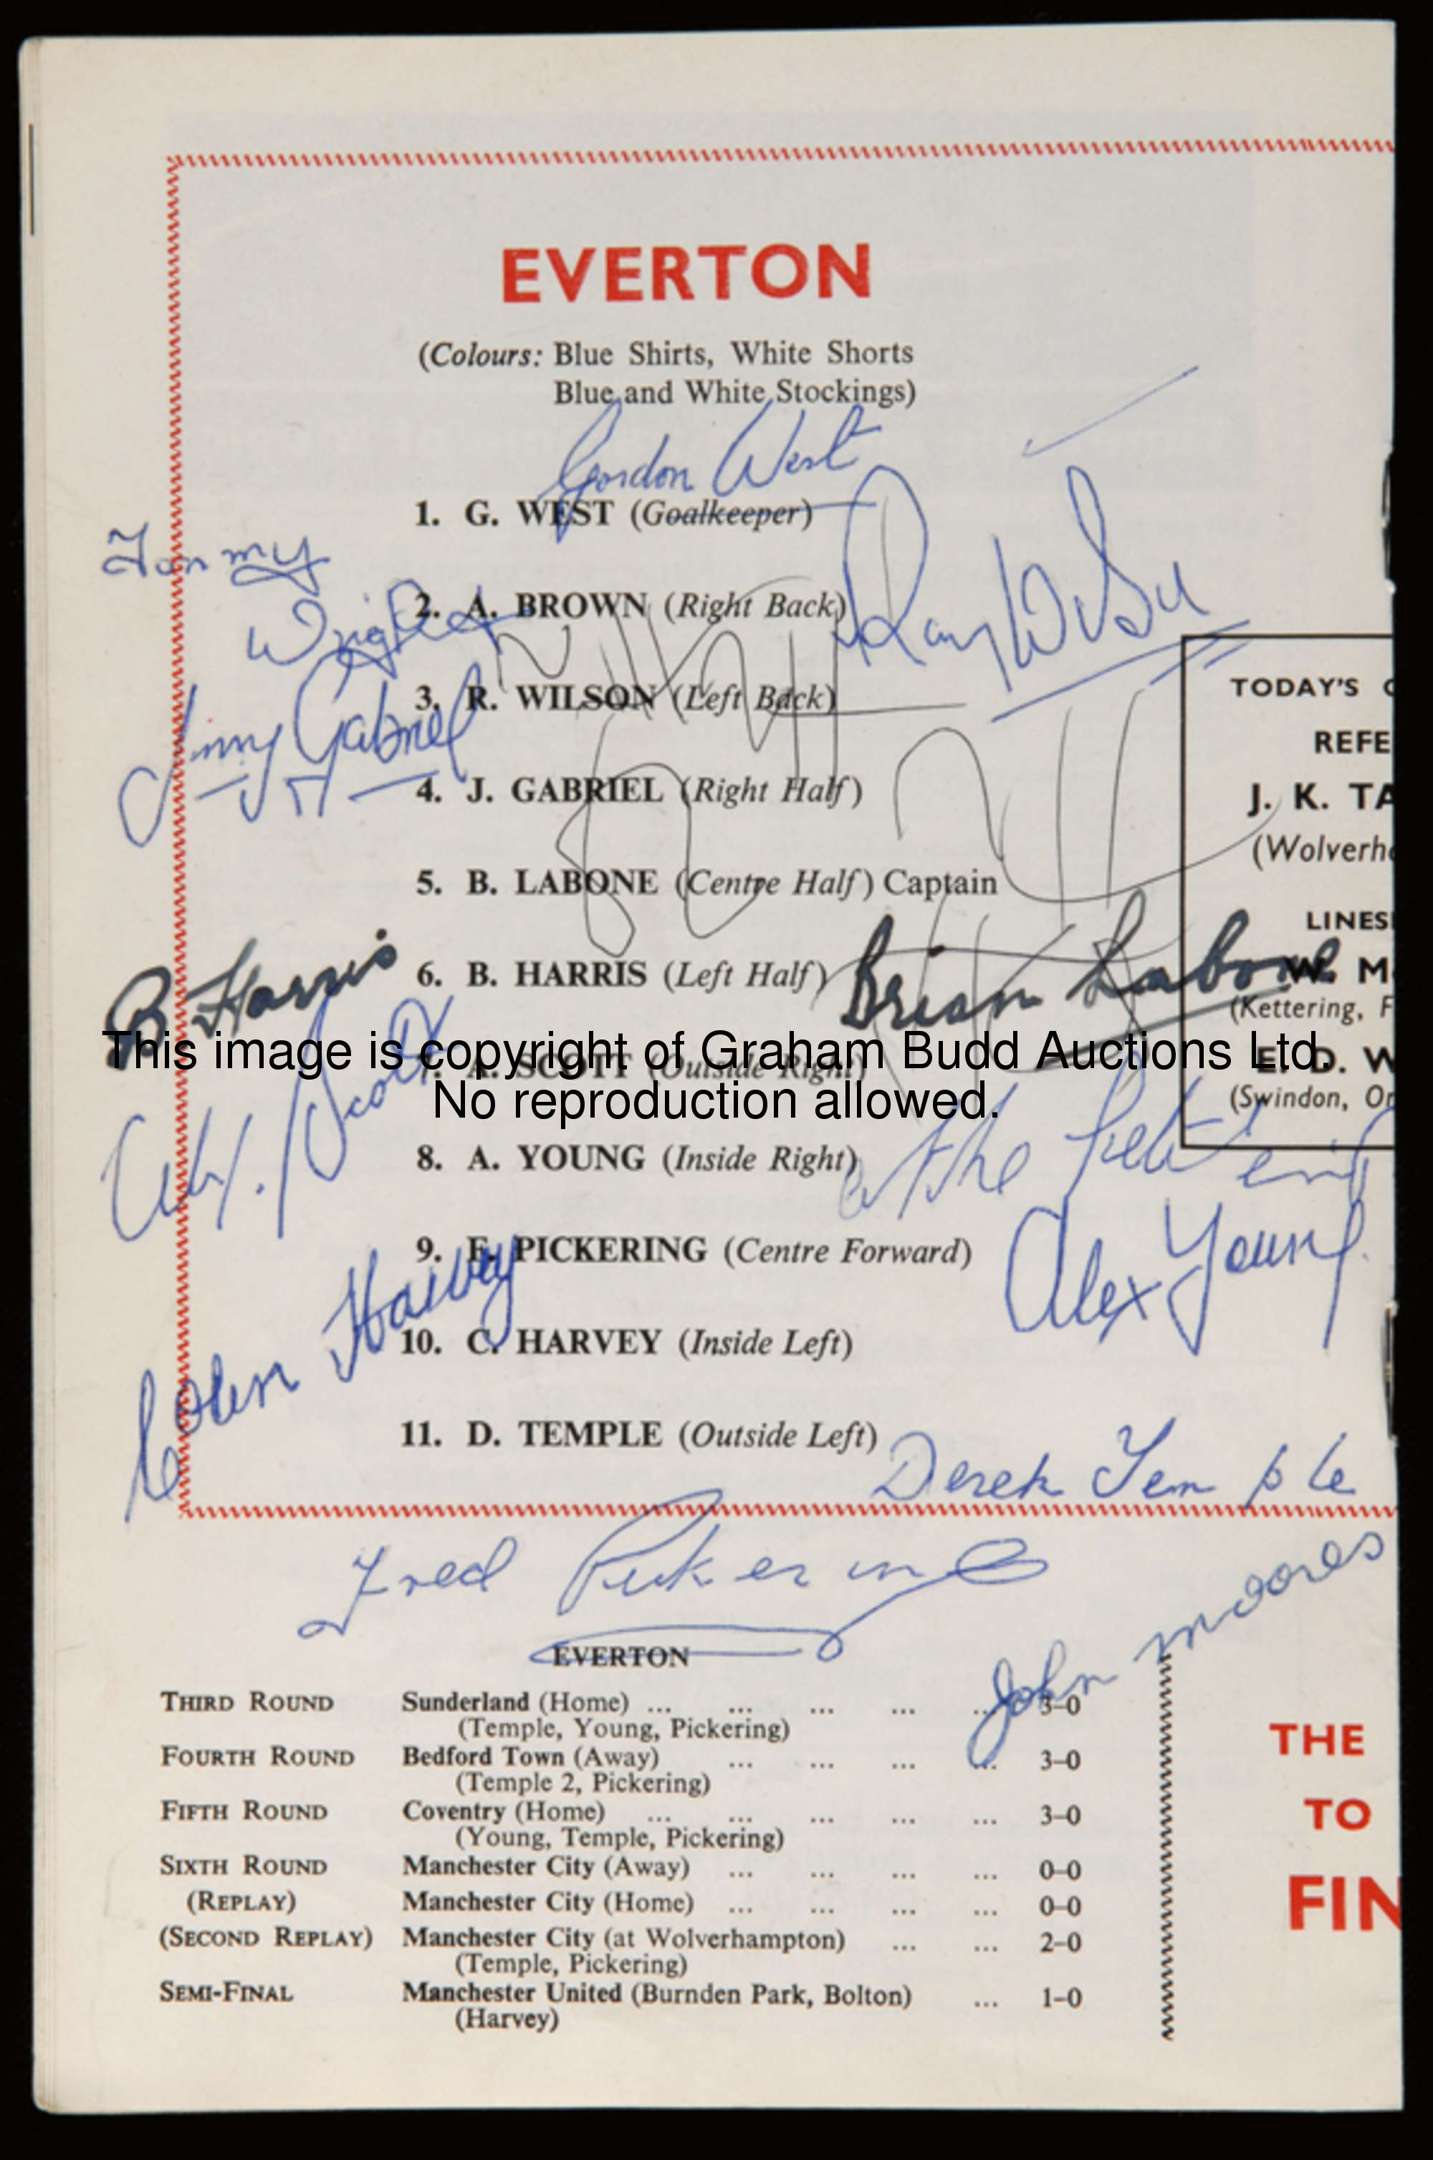 EVERTON
(Colours: Blue Shirts, White Shorts
Blue and White Stockings)
Gordon West
1. G. WEST (Goalkeeper)
Tommy
Wright
2. A. BROWN (Right Back)
Ray Wilson
3. R. WILSON (Left Back)
Jimmy Gabriel
4. J. GABRIEL (Right Half)
5. B. LABONE (Centre Half) Captain
B Harris
6. B. HARRIS (Left Half)
Brian Labone
7. A. SCOTT (Outside Right)
Alex. Scott
8. A. YOUNG (Inside Right)
Alex Young
9. F. PICKERING (Centre Forward)
Colin Harvey
10. C. HARVEY (Inside Left)
11. D. TEMPLE (Outside Left)
Derek Temple
Fred Pickering
John moores
TODAY'S
REFE
J. K. TA
(Wolverh
LINES
W. M
(Kettering, F
E. D. W
(Swindon, Or
This image is copyright of Graham Budd Auctions Ltd.
No reproduction allowed.
EVERTON
THIRD ROUND Sunderland (Home) ... ... ... ... ... 3-0
(Temple, Young, Pickering)
FOURTH ROUND Bedford Town (Away) ... ... ... ... 3-0
(Temple 2, Pickering)
FIFTH ROUND Coventry (Home) ... ... ... ... ... 3-0
(Young, Temple, Pickering)
SIXTH ROUND Manchester City (Away) ... ... ... ... 0-0
(REPLAY) Manchester City (Home) ... ... ... ... 0-0
(SECOND REPLAY) Manchester City (at Wolverhampton) ... ... 2-0
(Temple, Pickering)
SEMI-FINAL Manchester United (Burnden Park, Bolton) ... 1-0
(Harvey)
THE
TO
FIN